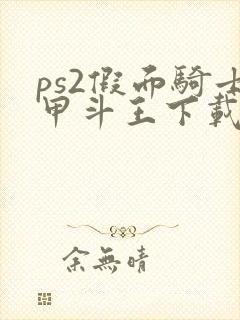 ps2假面騎士
甲斗王下載
余無晴